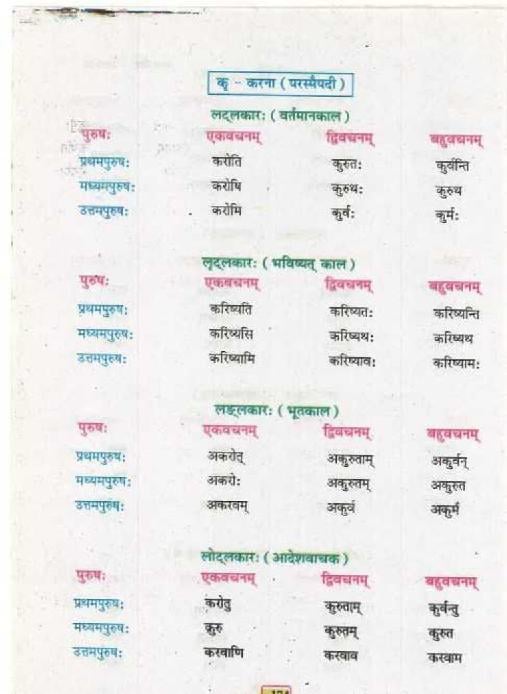 कृ - करना ( परस्मैपदी )
लट्लकारः ( वर्तमानकाल )
पुरुषः एकवचनम् द्विवचनम् बहुवचनम्
प्रथमपुरुषः करोति कुरुतः कुर्वन्ति
मध्यमपुरुषः करोषि कुरुथः कुरुथ
उत्तमपुरुषः करोमि कुर्वः कुर्मः
लृट्लकारः ( भविष्यत् काल )
पुरुषः एकवचनम् द्विवचनम् बहुवचनम्
प्रथमपुरुषः करिष्यति करिष्यतः करिष्यन्ति
मध्यमपुरुषः करिष्यसि करिष्यथः करिष्यथ
उत्तमपुरुषः करिष्यामि करिष्यावः करिष्यामः
लङ्लकारः ( भूतकाल )
पुरुषः एकवचनम् द्विवचनम् बहुवचनम्
प्रथमपुरुषः अकरोत् अकुरुताम् अकुर्वन्
मध्यमपुरुषः अकरोः अकुरुतम् अकुरुत
उत्तमपुरुषः अकरवम् अकुर्व अकुर्म
लोट्लकारः ( आदेशवाचक )
पुरुषः एकवचनम् द्विवचनम् बहुवचनम्
प्रथमपुरुषः करोतु कुरुताम् कुर्वन्तु
मध्यमपुरुषः कुरु कुरुतम् कुरुत
उत्तमपुरुषः करवाणि करवाव करवाम